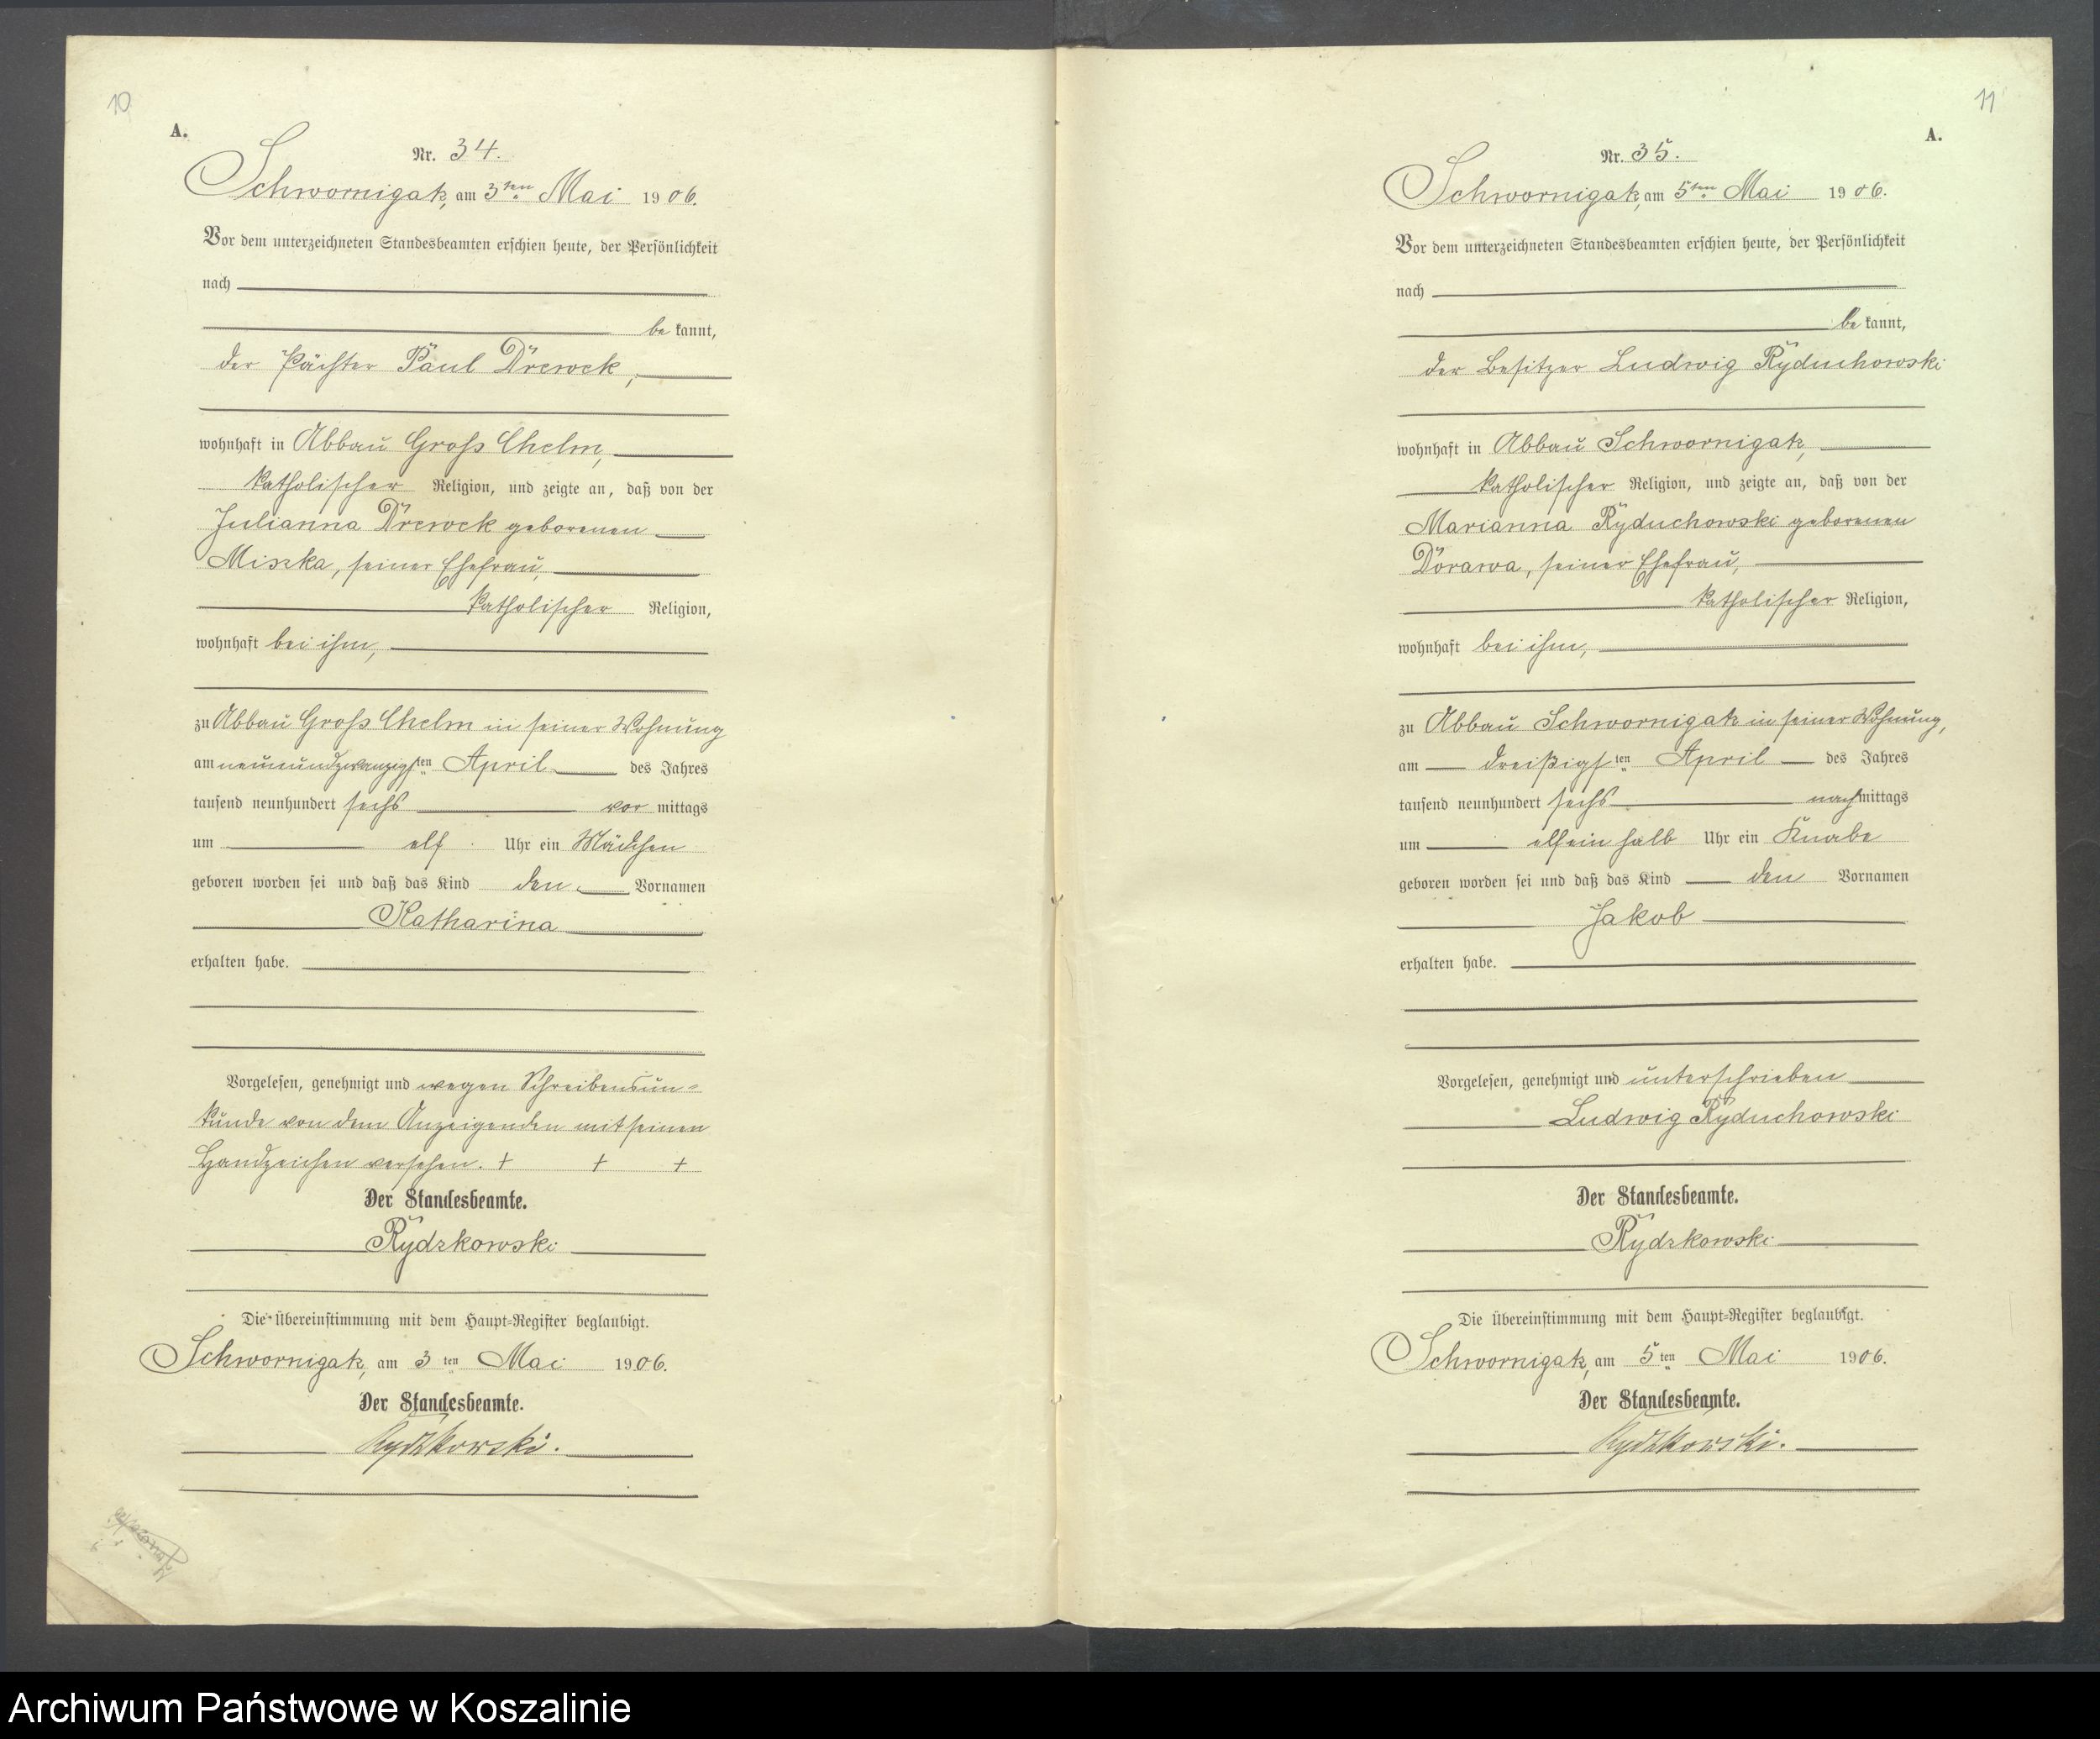 10
A.
Nr. 34.
Schwornigatz, am 3ten Mai 1906.
Vor dem unterzeichneten Standesbeamten erschien heute, der Persönlichkeit
nach
be kannt,
der Pächter Paul Drewek,
wohnhaft in Abbau Groß Chelm,
katholischer Religion, und zeigte an, daß von der
Julianna Drewek geborenen
Miszka, seiner Ehefrau,
katholischer Religion,
wohnhaft bei ihm,
zu Abbau Groß Chelm in seiner Wohnung
am neunundzwanzigsten April des Jahres
tausend neunhundert sechs vor mittags
um elf Uhr ein Mädchen
geboren worden sei und daß das Kind den Vornamen
Katharina
erhalten habe.
Vorgelesen, genehmigt und wegen Schreibensun-
kunde von dem Anzeigenden mit seinen
Handzeichen versehen. + + +
Der Standesbeamte.
Rydzkowski
Die Übereinstimmung mit dem Haupt-Register beglaubigt.
Schwornigatz, am 3ten Mai 1906.
Der Standesbeamte.
Rydzkowski.
11
A.
Nr. 35.
Schwornigatz, am 5ten Mai 1906.
Vor dem unterzeichneten Standesbeamten erschien heute, der Persönlichkeit
nach
be kannt,
der Besitzer Ludwig Ryduchowski
wohnhaft in Abbau Schwornigatz,
katholischer Religion, und zeigte an, daß von der
Marianna Ryduchowski geborenen
Dorawa, seiner Ehefrau,
katholischer Religion,
wohnhaft bei ihm,
zu Abbau Schwornigatz in seiner Wohnung,
am dreißigsten April des Jahres
tausend neunhundert sechs nachmittags
um elfein halb Uhr ein Knabe
geboren worden sei und daß das Kind den Vornamen
Jakob
erhalten habe.
Vorgelesen, genehmigt und unterschrieben
Ludwig Ryduchowski
Der Standesbeamte.
Rydzkowski
Die Übereinstimmung mit dem Haupt-Register beglaubigt.
Schwornigatz, am 5ten Mai 1906.
Der Standesbeamte.
Rydzkowski.
Archiwum Państwowe w Koszalinie